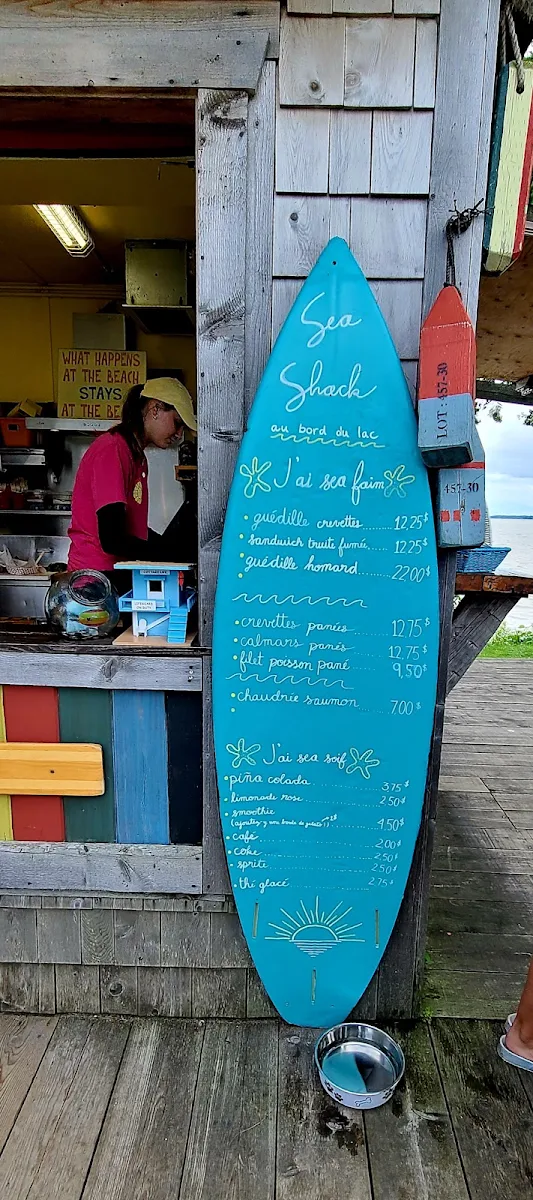 WHAT HAPPENS
AT THE BEACH
STAYS
AT THE BE
Sea
Shack
au bord du lac
J'ai sea faim
• guédille crevettes........12,25$
• sandwich truite fumée........12,25$
• guédille homard........22,00$
• crevettes panées........12,75$
• calmars panés........12,75$
• filet poisson pané........9,50$
• chaudrée saumon........7,00$
J'ai sea soif
• piña colada........3,75$
• limonade rose........2,50$
• smoothie
(ajoutez y une boule de gelato!)........4,50$
• café........2,00$
• coke........2,50$
- sprite........2,50$
• thé glacé........2,75$
LOT: 457-30
457-30